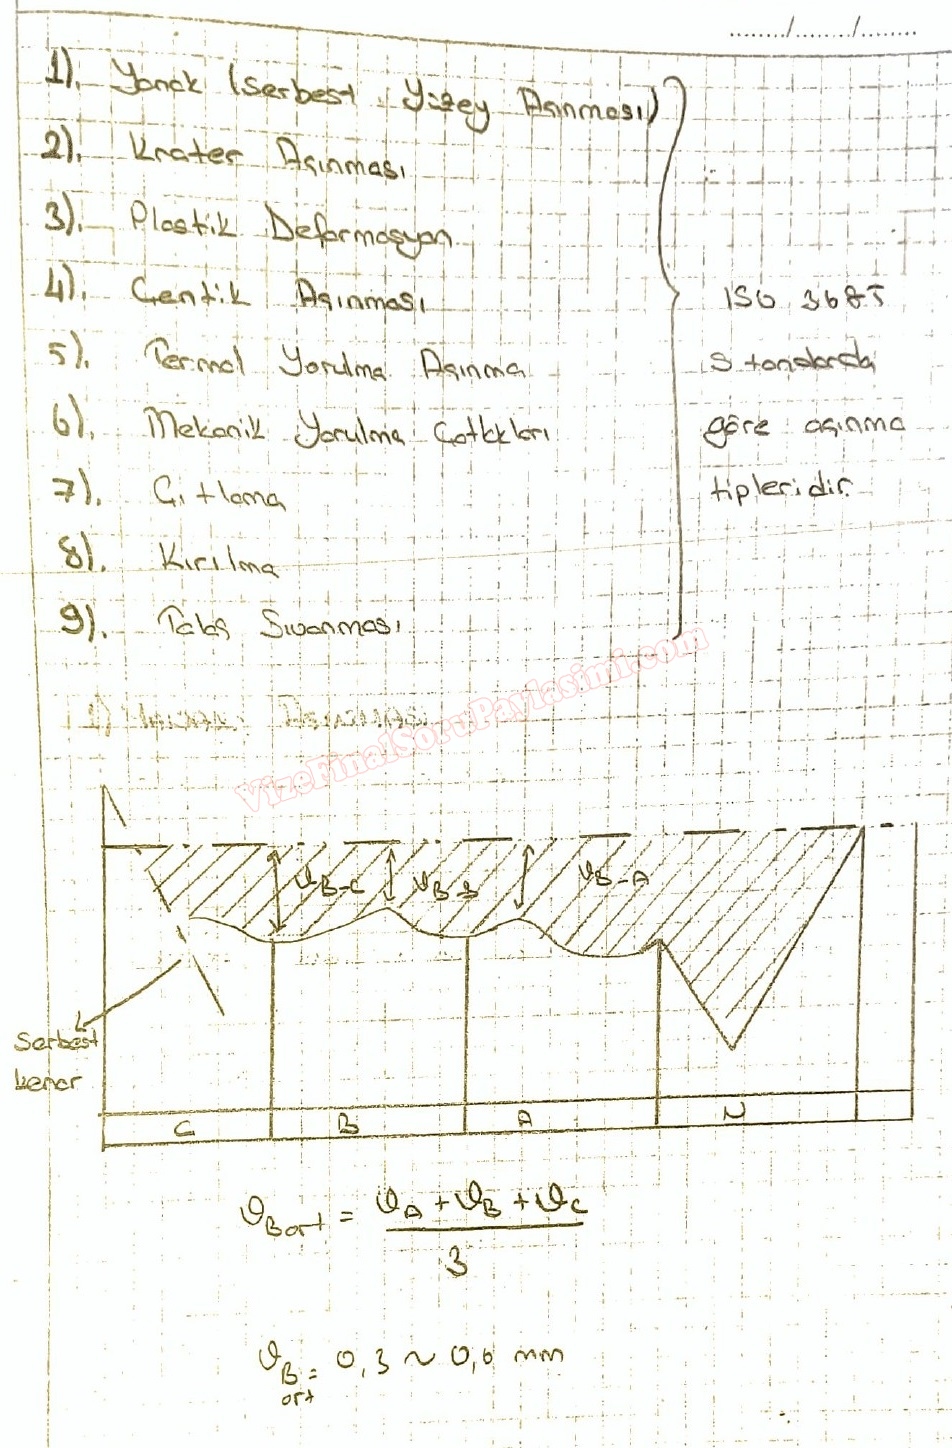 ....../....../......
1). Yanak (Serbest Yüzey Aşınması)
2). Krater Aşınması
3). Plastik Deformasyon
4). Çentik Aşınması
5). Termal Yorulma Aşınma
6). Mekanik Yorulma Çatlakları
7). Çıtlama
8). Kırılma
9). Talaş Sıvanması
ISO 3685
Standarda
göre aşınma
tipleridir.
VizeFinalSoruPaylasimi.com
VB-C VB-B VB-A
Serbest
kenar
C B A N
VBort = VA + VB + VC / 3
VBort = 0,3 ~ 0,6 mm